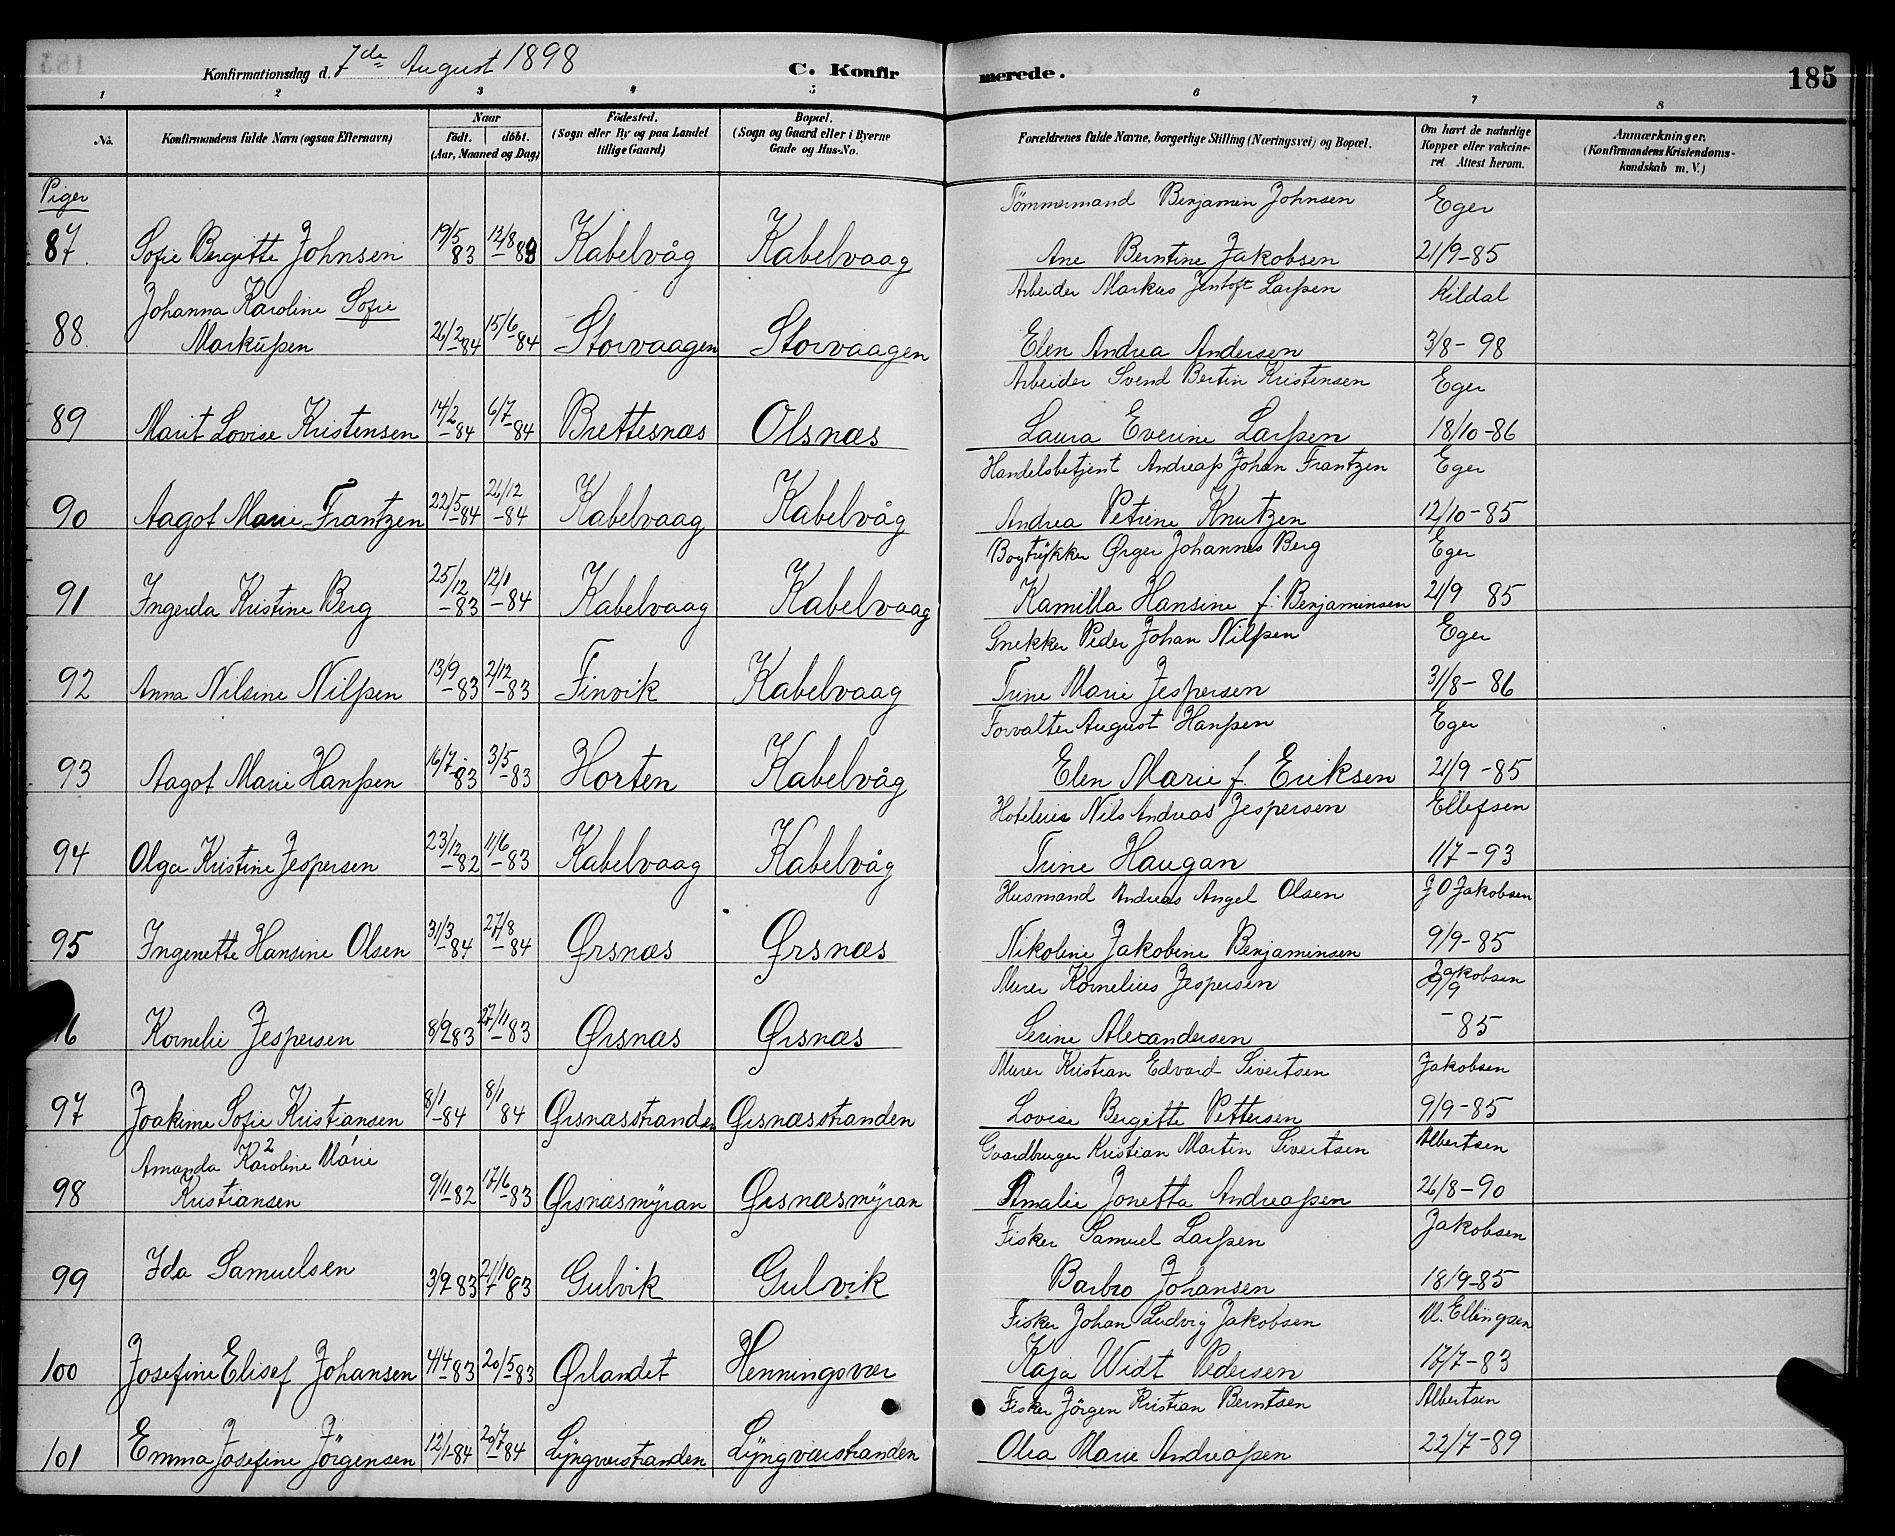 185
Konfirmationsdag d. 7de August 1898 C. Konfirmerede.
1 2 3 4 5 6 7 8
No. Konfirmandens fulde Navn (ogsaa Efternavn) Naar født. døbt. (Aar, Maaned og Dag) Fødested. (Sogn eller By og paa Landet tillige Gaard) Bopæl. (Sogn og Gaard eller i Byerne Gade og Hus-No. Forældrenes fulde Navne, borgerlige Stilling (Næringsvei) og Bopæl. Om havt de naturlige Kopper eller vakcineret Attest herom. Anmærkninger. (Konfirmandens Kristendomskundskab m. V.)
Piger
Tömmermand Benjamin Johnsen Eger
87. Sofie Bergitte Johnsen 19/5 83 12/8-83 Kabelvåg Kabelvaag Ane Berntine Jakobsen 21/9-85
Johanna Karoline Sofie Arbeider Markus Jentoft Larssen Kildal
88. Markussen 26/2-84 15/6-84 Storvaagen Storvaagen Elen Andrea Andersen 3/8-98
Arbeider Svend Bertin Kristensen Eger
89 Marit Lovise Kristensen 14/2-84 6/7-84 Brettesnæs Olsnæs Laura Everine Larssen 18/10-86
Handelsbetjent Andreas Johan Frantzen Eger
90 Aagot Marie Frantzen 22/5-84 26/12-84 Kabelvaag Kabelvåg Andrea Petrine Knutzen 12/10-85
Bogtrykker Ørger Johannes Berg Eger
91 Ingerda Kristine Berg 25/12-83 12/1-84 Kabelvaag Kabelvaag Kamilla Hansine f: Benjaminsen 21/9 85
Snekker Peder Johan Nilssen Eger
92 Anna Nilsine Nilssen 13/9-83 2/12-83 Finvik Kabelvaag Trine Marie Jespersen 31/8-86
Forvalter August Hanssen Eger
93 Aagot Marie Hanssen 16/7-83 3/5-83 Horten Kabelvåg Elen Marie f. Eriksen 21/9-85
Hoteleier Nils Andreas Jespersen Ellefsen
94 Olga Kristine Jespersen 23/12-82 11/6-83 Kabelvaag Kabelvåg Trine Haugan 1/7-93
Husmand Andreas Angel Olsen J O Jakobsen
95 Ingenette Hansine Olsen 31/3-84 27/8-84 Ørsnæs Ørsnæs Nikoline Jakobine Benjaminsen 9/9-85
Murer Kornelius Jespersen Jakobsen 9/9
6 Kornelie Jespersen 8/9 83 27/11-83 Ørsnæs Ørsnæs Serine Alexandersen -85
Murer Kristian Edvard Sivertsen Jakobsen
97 Joakime Sofie Kristiansen 8/1-84 8/1 84 Ørsnæsstranden Ørsnæsstranden Lovise Bergitte Pettersen 9/9-85
Amanda Karoline Marie Gaardbruger Kristian Martin Sivertsen Albertsen
98 Kristiansen 9/11-82 17/6-83 Ørsnæsmyran Ørsnæsmyran Amalie Jonetta Andreassen 26/8-90
Fisker Samuel Larssen Jakobsen
99 Ida Samuelsen 3/9-83 21/10 83 Gulvik Gulvik Barbro Johansen 18/9-85
Fisker Johan Ludvig Jakobsen M. Ellingsen
100 Josefine Elisef Johansen 4/4-83 20/5-83 Ørlandet Henningsvær Kaja Widt Pedersen 17/7-83
Fisker Jörgen Kristian Berntsen Albertsen
101 Emma Josefine Jörgensen 12/1-84 20/7-84 Lyngværstranden Lyngværstranden Olea Marie Andreassen 22/7-89